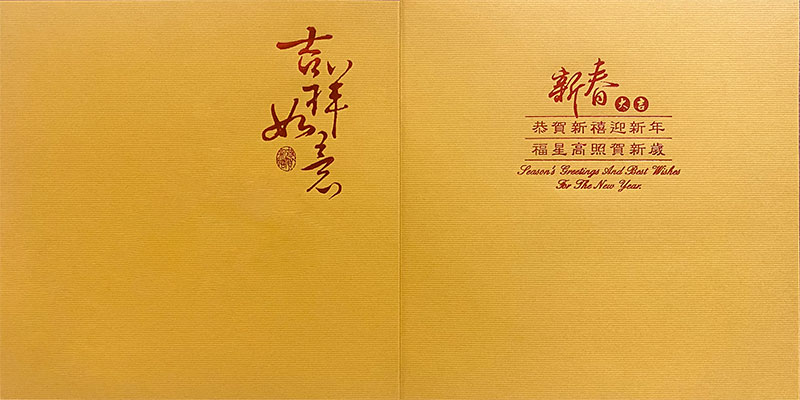 吉祥如意
新春大吉
恭賀新禧迎新年
福星高照賀新歲
Season's Greetings And Best Wishes
For The New Year.